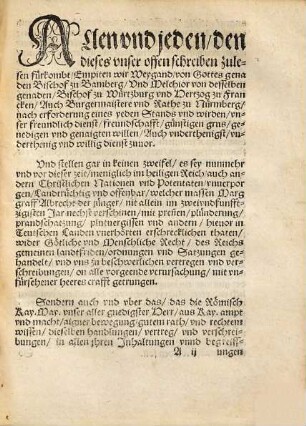 Allen vnd jeden/den
dieses vnser offen schreiben zule-
sen fürkombt/Empiten wir Weygand/von Gottes gena
den Bischof zu Bamberg/Vnd Melchior von desselben
genaden/Bischof zu Würtzburg vnd Hertzog zu Franc-
cken/Auch Burgermaistere vnd Rathe zu Nürmberg/
nach erforderung eines yeden Stands vnd wirden/vn-
ser freundlich dienst/freundschafft/günstigen grus/ge-
nedigen vnd genaigten willen/Auch vnderthenigst/vn-
derthenig vnd willig dienst zuuor.
Vnd stellen gar in keinen zweifel/es sey nunmehr
vnd vor dieser zeit/meniglich im heiligen Reich/auch an-
dern Christlichen Nationen vnd Potentaten/vnuerpor-
gen/Landrüchtig vnd offenbar/welcher massen Marg
graff Albrecht der jünger/nit allein im zweivndfunff-
tzigisten Jar nechst verschinen/mit preissen/plünderung/
prandschatzung/plutuergissen vnd andern/hieuor in
Teutschen Landen vnerhörten erschrecklichen thaten/
wider Götliche vnd Menschliche Recht/des Reichs
gemeinen landfriden/ordnungen vnd Satzungen ge-
handelt/vnd vns zu beschwerlichen vertregen vnd ver-
schreibungen/on alle vorgeende verursachung/mit vn-
fürsehener heeres crafft getrungen.
Sondern auch vnd vber das/das die Römisch
Kay. May. vnser aller gnedigster Herr/aus Kay. ampt
vnd macht/aigner bewegung/gutem rath/vnd rechtem
wissen/dieselben handlungen/vertreg/vnd verschrei-
bungen/in allen jhren Inhaltungen vnnd begreiff-
A ij ungen